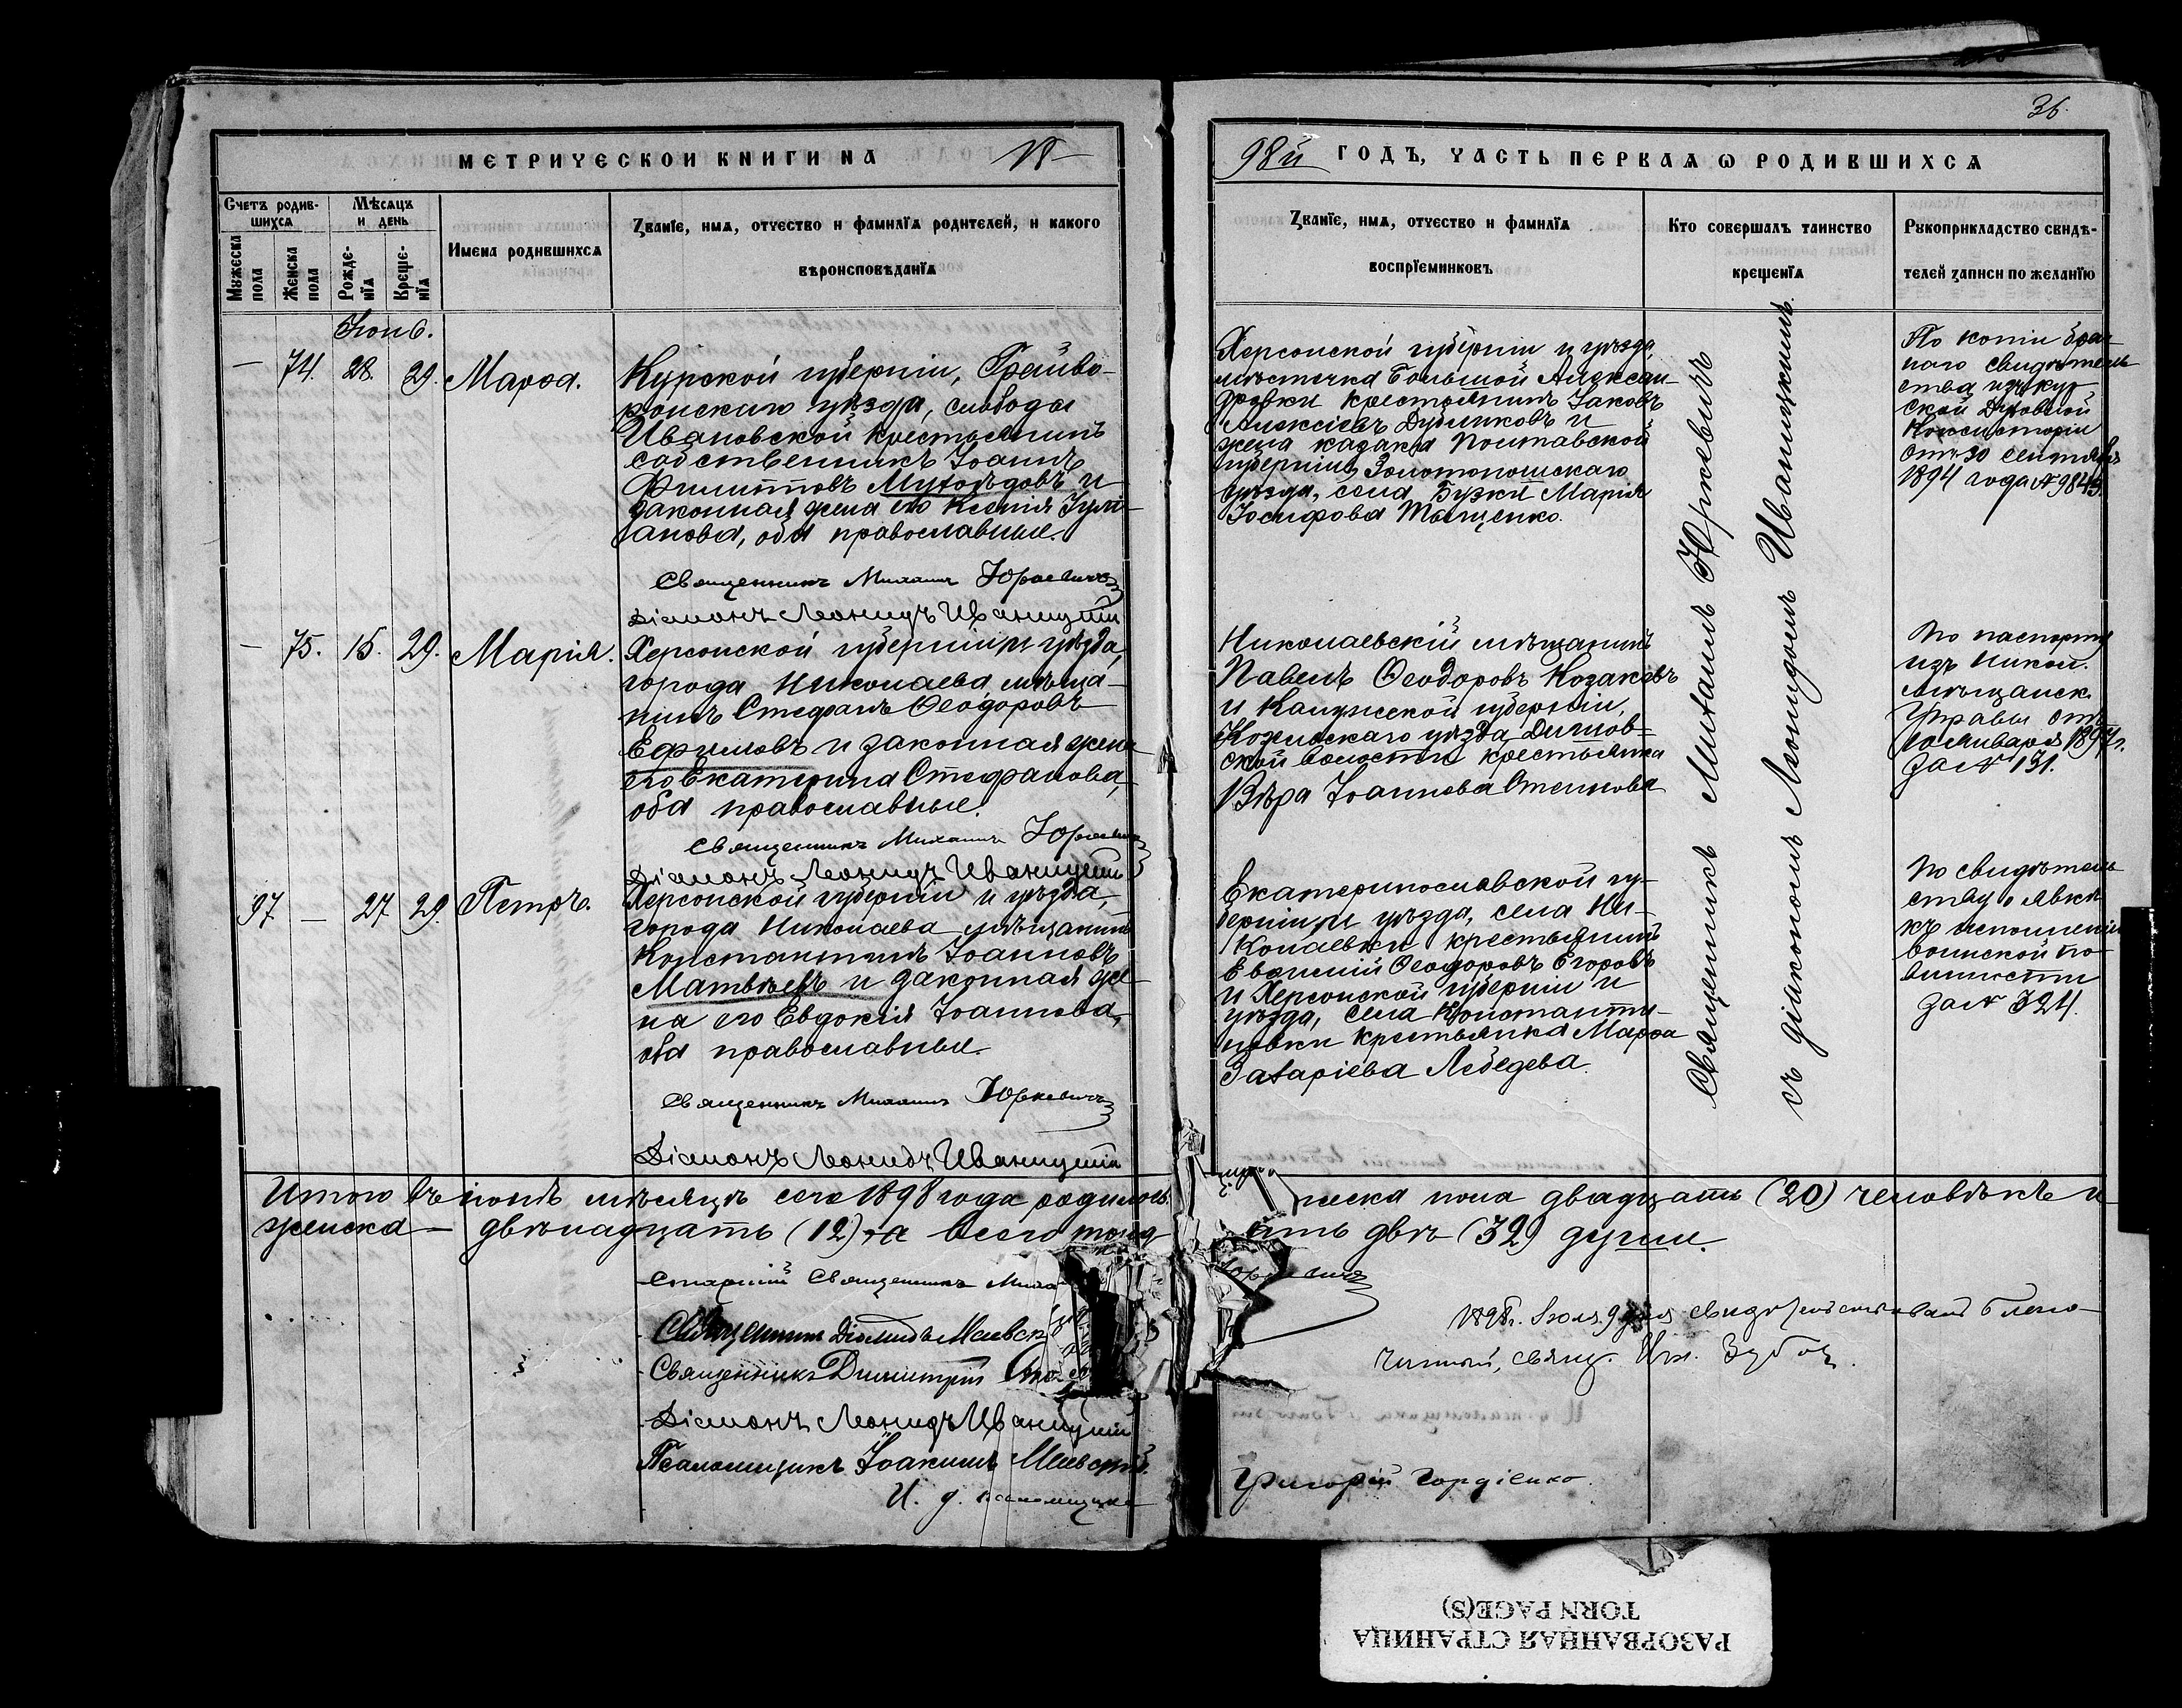 36.
МЕТРИЧЕСКОЙ КНИГИ НА 18
98й ГОДЪ, ЧАСТЬ ПЕРВАЯ Ѡ РОДИВШИХСЯ
Счетъ родив-
шихся
Мужеска пола
Женска пола
Мѣсяцъ
и день
Рожде-
нїя
Креще-
нїя
Имена родившихся
Званїе, имя, отчество и фамилїя родителей, и какого
вѣроисповѣданїя
Званїе, имя, отчество и фамилїя
воспрїемниковъ
Кто совершалъ таинство
крещенїя
Рукоприкладство свидѣ-
телей записи по желанїю
Іюнь.
— 74. 28. 29. Марѳа.
Курской губерніи, Грайво-
ронскаго уѣзда, слободы
Ивановской крестьянинъ
собственникъ Іоаннъ
Филипповъ Мухоѣдовъ и
законная жена его Ксенія Іулі-
анова, оба православные.
Священникъ Михаилъ Юркевичъ
Діаконъ Леонидъ Иваницкій
Херсонской губерніи и уѣзда,
мѣстечка Большой Алексан-
дровки крестьянинъ Іаковъ
Алексіевъ Дубликовъ и
жена казака Полтавской
губерніи, Золотоношскаго
уѣзда, села Бузки Марія
Іосифова Тыщенко.
По копіи брач-
наго свидѣтель-
ства изъ Кур-
ской Духовной
Консисторіи
отъ 30 Сентября
1894 года № 9843
— 75. 15. 29. Марія.
Херсонской губерніи и уѣзда,
города Николаева, мѣща-
нинъ Стефанъ Ѳеодоровъ
Ефимовъ и законная жена
его Екатерина Стефанова,
оба православные.
Священникъ Михаилъ Юркевичъ
Діаконъ Леонидъ Иваницкій
Николаевскій мѣщанинъ
Павелъ Ѳеодоровъ Козаковъ
и Калужской губерніи,
Козельскаго уѣзда
ской волости крестьянка
Вѣра Іоаннова
По паспорту
изъ Никол.
мѣщанск.
Управы отъ
10 Января 1897 г.
за № 131.
97. — 27. 29. Петръ.
Херсонской губерніи и уѣзда,
города Николаева мѣщанинъ
Константинъ Іоанновъ
Матвѣевъ и законная же-
на его Евдокія Іоаннова,
оба православные.
Священникъ Михаилъ Юркевичъ
Діаконъ Леонидъ Иваницкій
Екатеринославской гу-
берніи и уѣзда, села Ни-
колаевки крестьянинъ
Евѳимій Ѳеодоровъ Егоровъ
и Херсонской губерніи и
уѣзда, села Константи-
новки крестьянка Марѳа
Захаріева Лебедева.
По свидѣтель-
ству о явкѣ
къ исполненію
воинской по-
винности
за № 324.
Священникъ Михаилъ Юркевичъ
съ діакономъ Леонидомъ Иваницкимъ.
Итого въ іюнѣ мѣсяцѣ сего 1898 года родилось мужеска пола двадцать (20) человѣкъ и
женска — двѣнадцать (12), а всего тридцать двѣ (32) души.
Старшій Священникъ Михаилъ Юркевичъ
Священникъ Діомидъ Маевскій
Священникъ Димитрій
Діаконъ Леонидъ Иваницкій
Псаломщикъ Іоакимъ Маевскій.
И. д. псаломщика Григорій Гордіенко.
1898 г. Іюля 9 дня свидѣтельствовалъ Благо-
чинный, свящ.
РАЗОРВАННАЯ СТРАНИЦА
TORN PAGE(S)